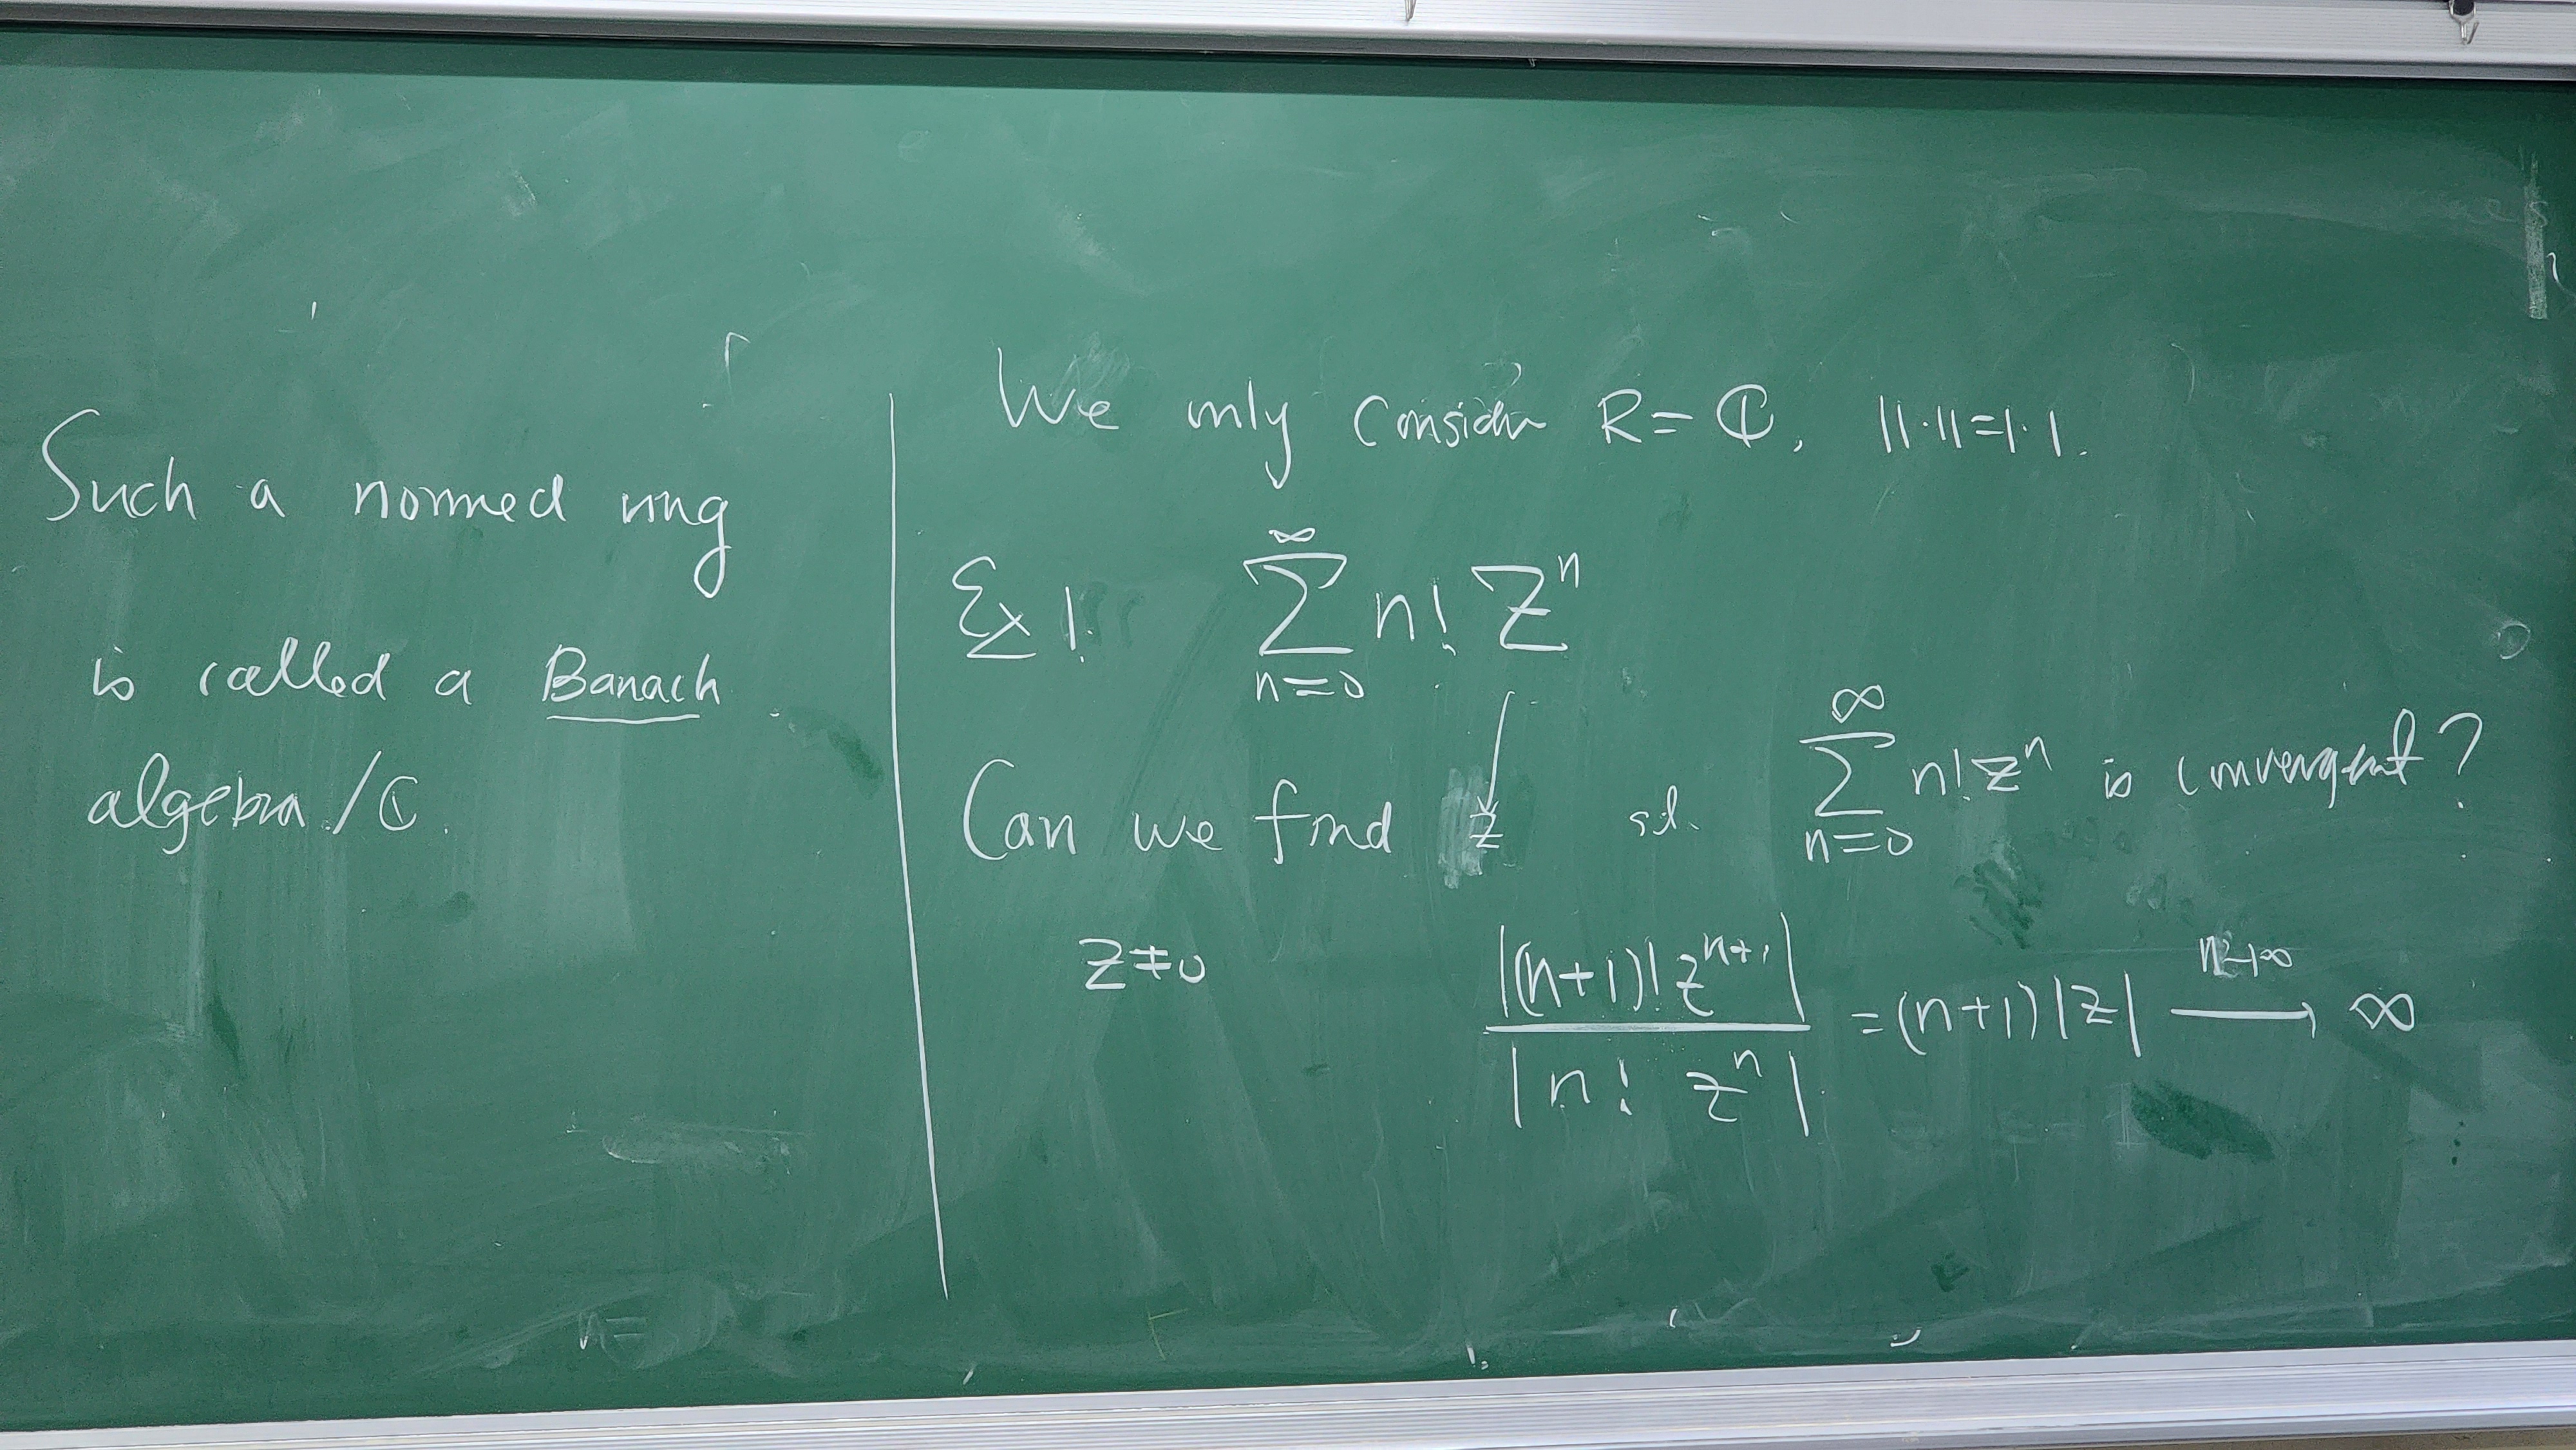 Such a normed ring
is called a Banach
algebra/ℂ.
We only consider R = ℂ, ||·|| = |·|.
Ex 1. ∑_{n=0}^{∞} n! z^n
Can we find z st. ∑_{n=0}^{∞} n! z^n is convergent?
z ≠ 0 |(n+1)! z^{n+1}| / |n! z^n| = (n+1)|z| \xrightarrow{n→∞} ∞
n=